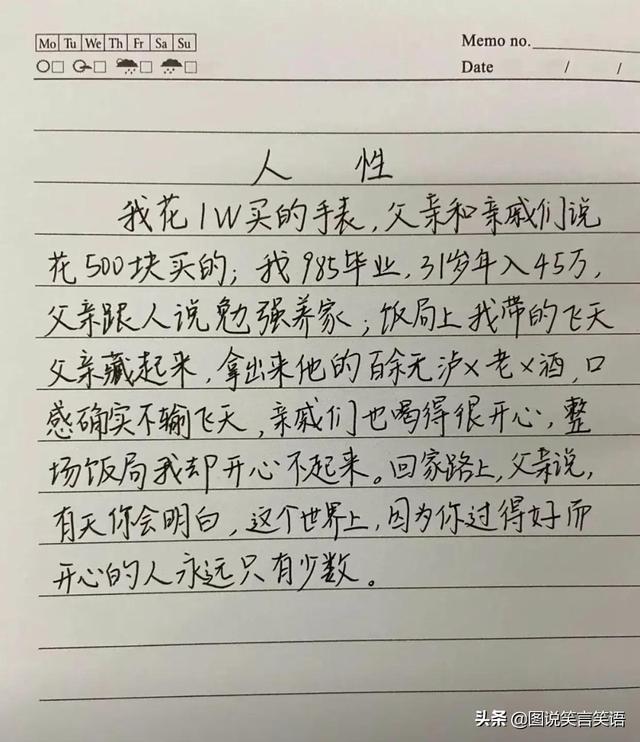 Mo Tu We Th Fr Sa Su
Memo no.
Date / /
人 性
我花1W买的手表,父亲和亲戚们说
花500块买的;我985毕业,31岁年入45万,
父亲跟人说勉强养家;饭局上我带的飞天
父亲藏起来,拿出来他的百余元泸x老x酒,口
感确实不输飞天,亲戚们也喝得很开心,整
场饭局我却开心不起来。回家路上,父亲说,
有天你会明白,这个世界上,因为你过得好而
开心的人永远只有少数。
头条 @图说笑言笑语